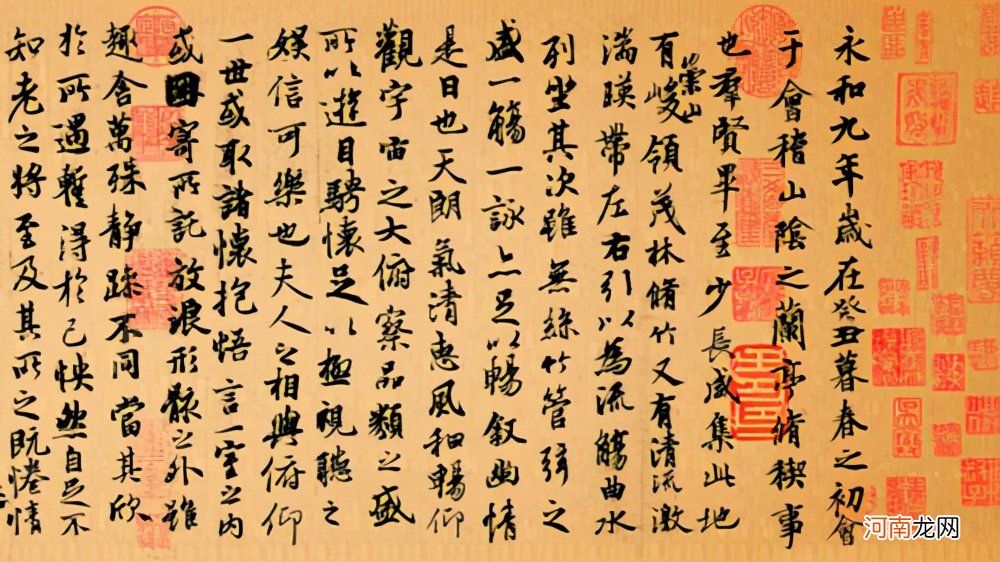 永和九年歲在癸丑暮春之初會
于會稽山陰之蘭亭脩稧事
也羣賢畢至少長咸集此地
有崇山峻領茂林脩竹又有清流激
湍暎帶左右引以為流觴曲水
列坐其次雖無絲竹管弦之
盛一觴一詠亦足以暢叙幽情
是日也天朗氣清惠風和暢仰
觀宇宙之大俯察品類之盛
所以遊目騁懷足以極視聽之
娛信可樂也夫人之相與俯仰
一世或取諸懷抱悟言一室之內
或因寄所託放浪形骸之外雖
趣舍萬殊静躁不同當其欣
於所遇蹔得於己怏然自足不
知老之將至及其所之既惓情
河南龙网